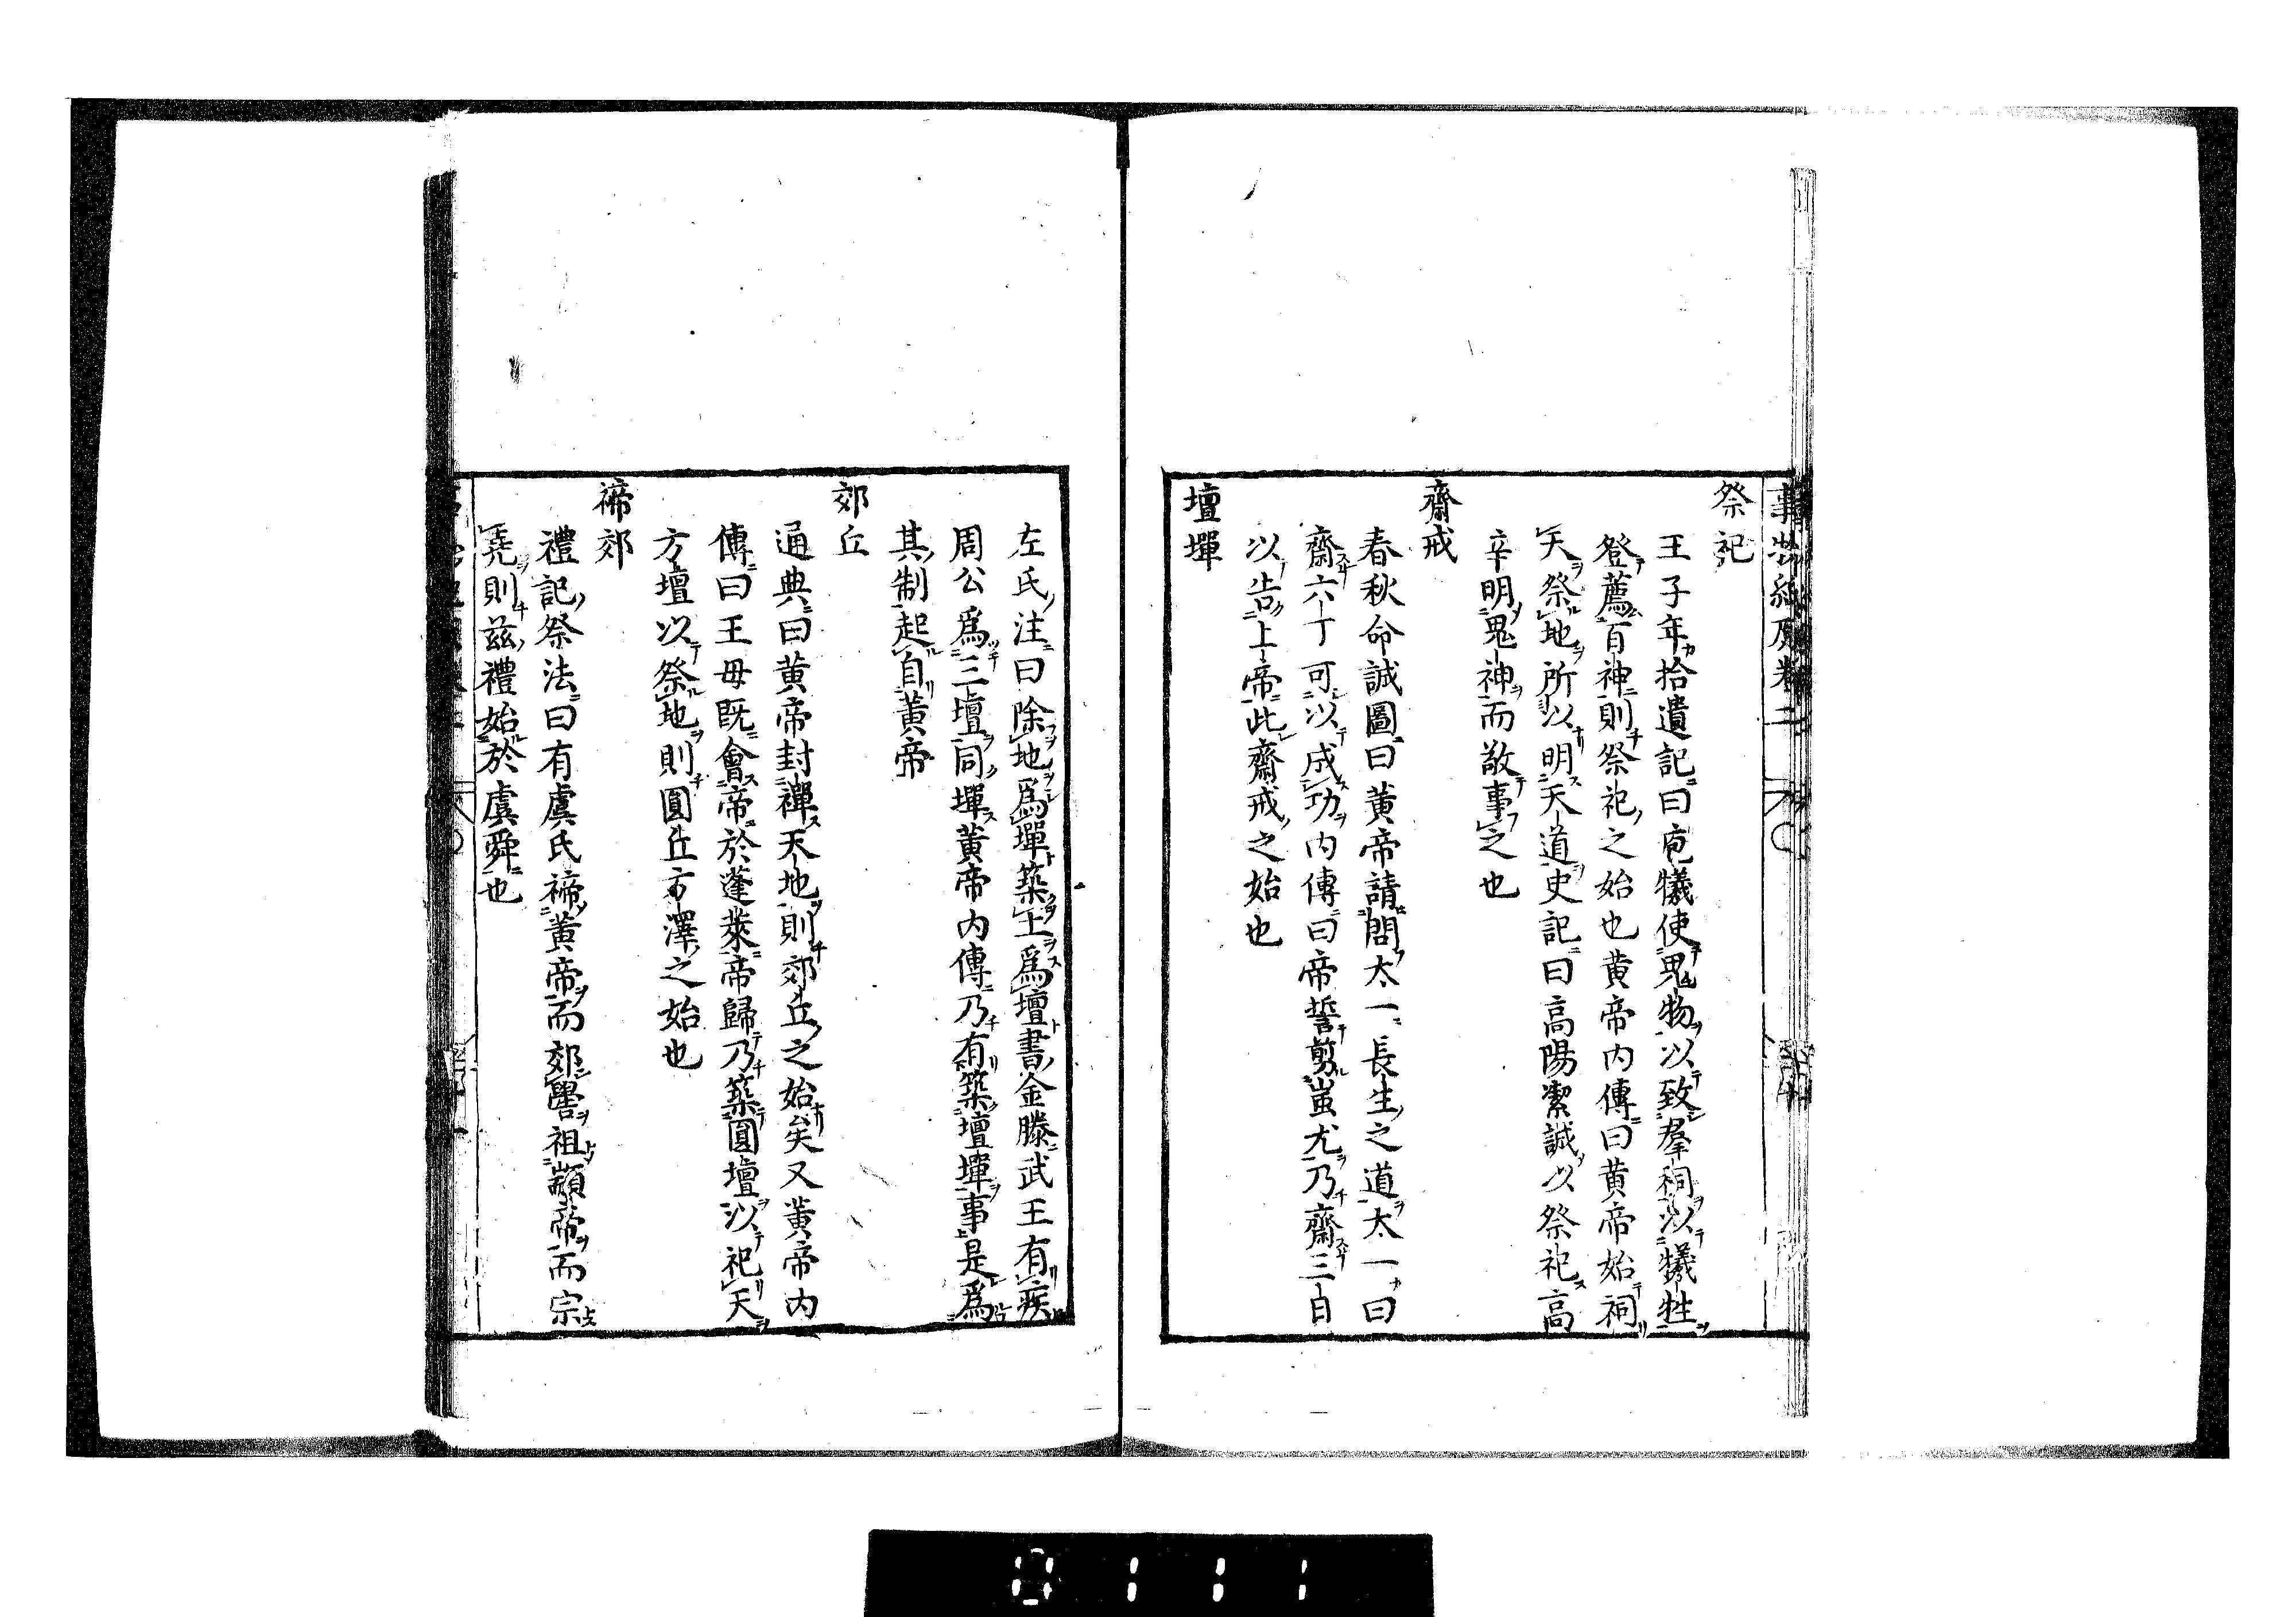 事物紀原卷二
祭祀
王子年拾遺記曰庖犧使鬼物以致羣祠以犧牲
登薦百神則祭祀之始也黄帝内傳曰黄帝始祠
天祭地所以明天道史記曰高陽潔誠以祭祀高
辛明鬼神而敬事之也
齋戒
春秋命誠圖曰黄帝請問太一長生之道太一曰
齋六丁可以成功内傳曰帝誓剪蚩尤乃齋三日
以告上帝此齋戒之始也
壇墠
左氏注曰除地爲墠築土爲壇書金縢武王有疾
周公爲三壇同墠黄帝内傳乃有築壇墠事是爲
其制起自黄帝
郊丘
通典曰黄帝封禪天地則郊丘之始矣又黄帝内
傳曰王母既會帝於蓬萊帝歸乃築圓壇以祀天
方壇以祭地則圓丘方澤之始也
禘郊
禮記祭法曰有虞氏禘黄帝而郊嚳祖顓帝而宗
堯則兹禮始於虞舜也
0111